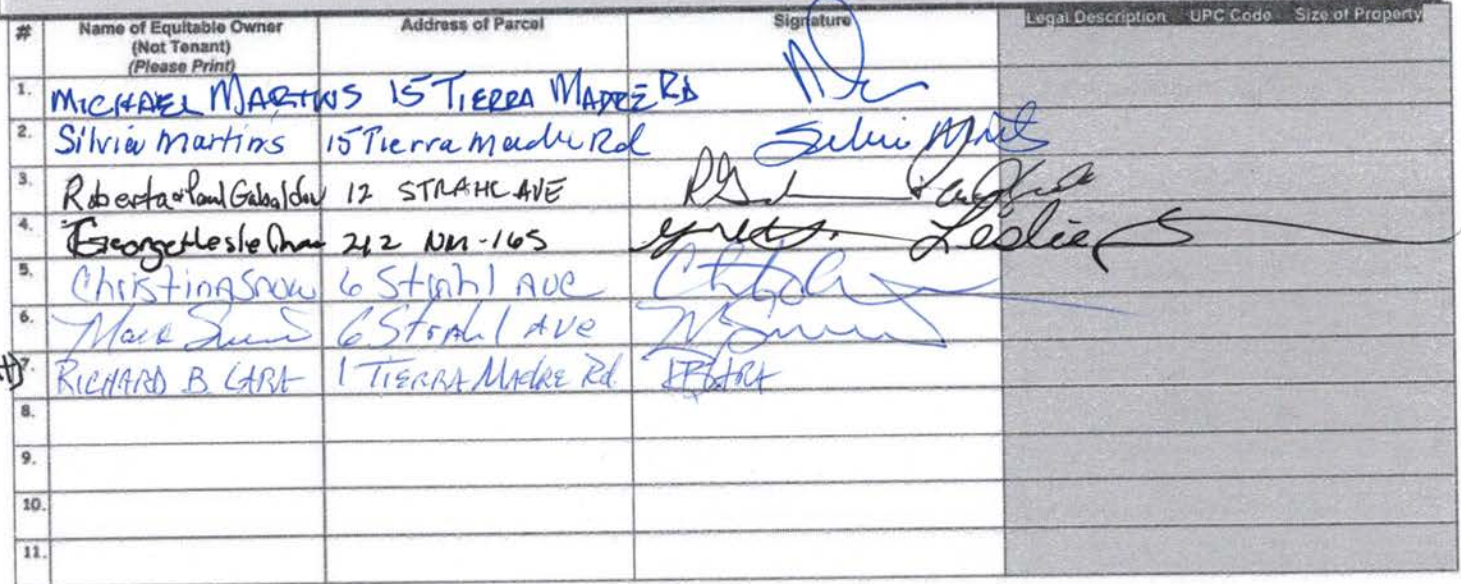 # Name of Equitable Owner (Not Tenant) (Please Print) Address of Parcel Signature Legal Description UPC Code Size of Property
1. MICHAEL MARTINS 15 TIERRA MADRE RD
2. Silvia Martins 15 Tierra Madre Rd Silvia
3. Roberta & Paul Gabaldon 12 STRAHL AVE
4. George Leslie 242 NM-165 Leslie
5. Christina Snow 6 Strahl Ave
6. Mark 6 Strahl Ave
7. RICHARD B LARA 1 TIERRA MADRE Rd. RBLARA
8.
9.
10.
11.